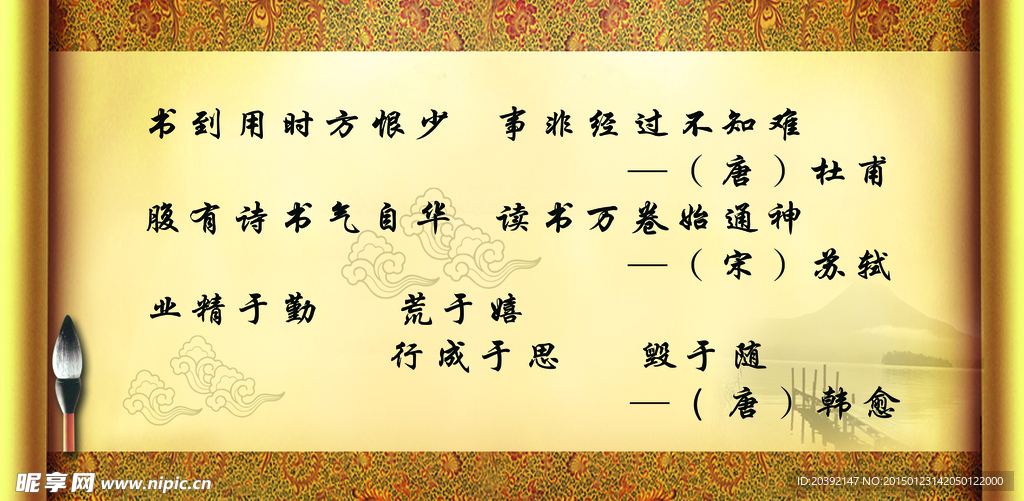 书到用时方恨少 事非经过不知难
—（唐）杜甫
腹有诗书气自华 读书万卷始通神
—（宋）苏轼
业精于勤 荒于嬉
行成于思 毁于随
—（唐）韩愈
昵享网 www.nipic.cn
ID:20392147 NO:20150123142050122000